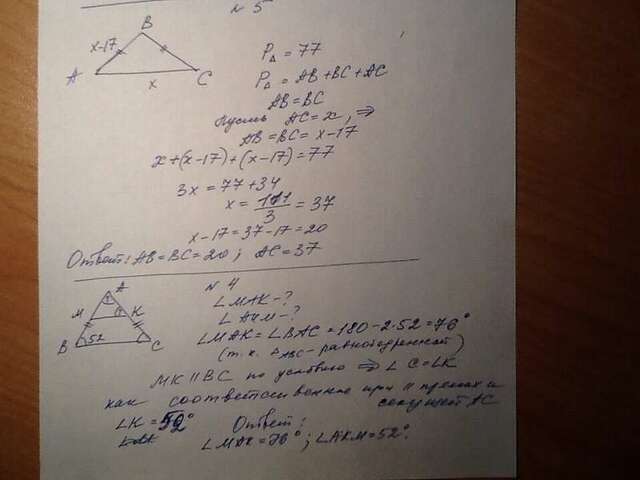 N 5
B
x-17
A
x
C
P△ = 77
P△ = AB+BC+AC
AB=BC
Пусть AC=x, ⇒
AB=BC= x-17
x+(x-17)+(x-17)=77
3x = 77+34
x = 111/3 = 37
x-17=37-17=20
Ответ: AB=BC=20; AC=37
N 4
A
M
K
B
52
C
∠MAK-?
∠AKM-?
∠MAK=∠BAC=180-2·52=76°
(т.к. △ABC-равнобедренный)
MK || BC по условию ⇒ ∠C=∠K
как соответственные при || прямых и
секущей AC
∠K = 52°
Ответ:
∠MAK=76°; ∠AKM=52°.